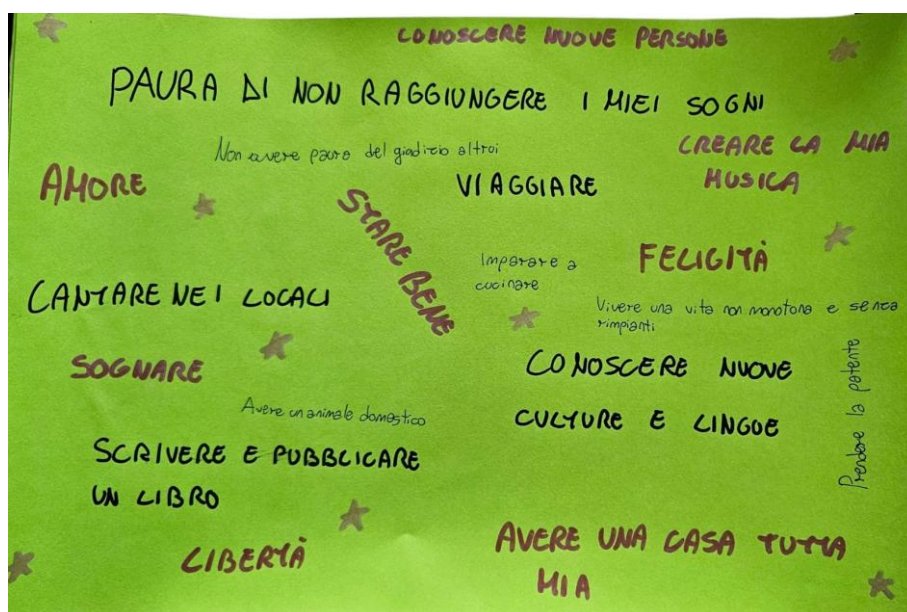 CONOSCERE NUOVE PERSONE
PAURA DI NON RAGGIUNGERE I MIEI SOGNI
Non avere paura del giudizio altrui
CREARE LA MIA
MUSICA
AMORE
VIAGGIARE
STARE BENE
Imparare a
cucinare
FELICITÀ
CANTARE NEI LOCALI
Vivere una vita non monotona e senza
rimpianti
SOGNARE
CONOSCERE NUOVE
CULTURE E LINGUE
Prendere la patente
Avere un animale domestico
SCRIVERE E PUBBLICARE
UN LIBRO
LIBERTÀ
AVERE UNA CASA TUTTA
MIA